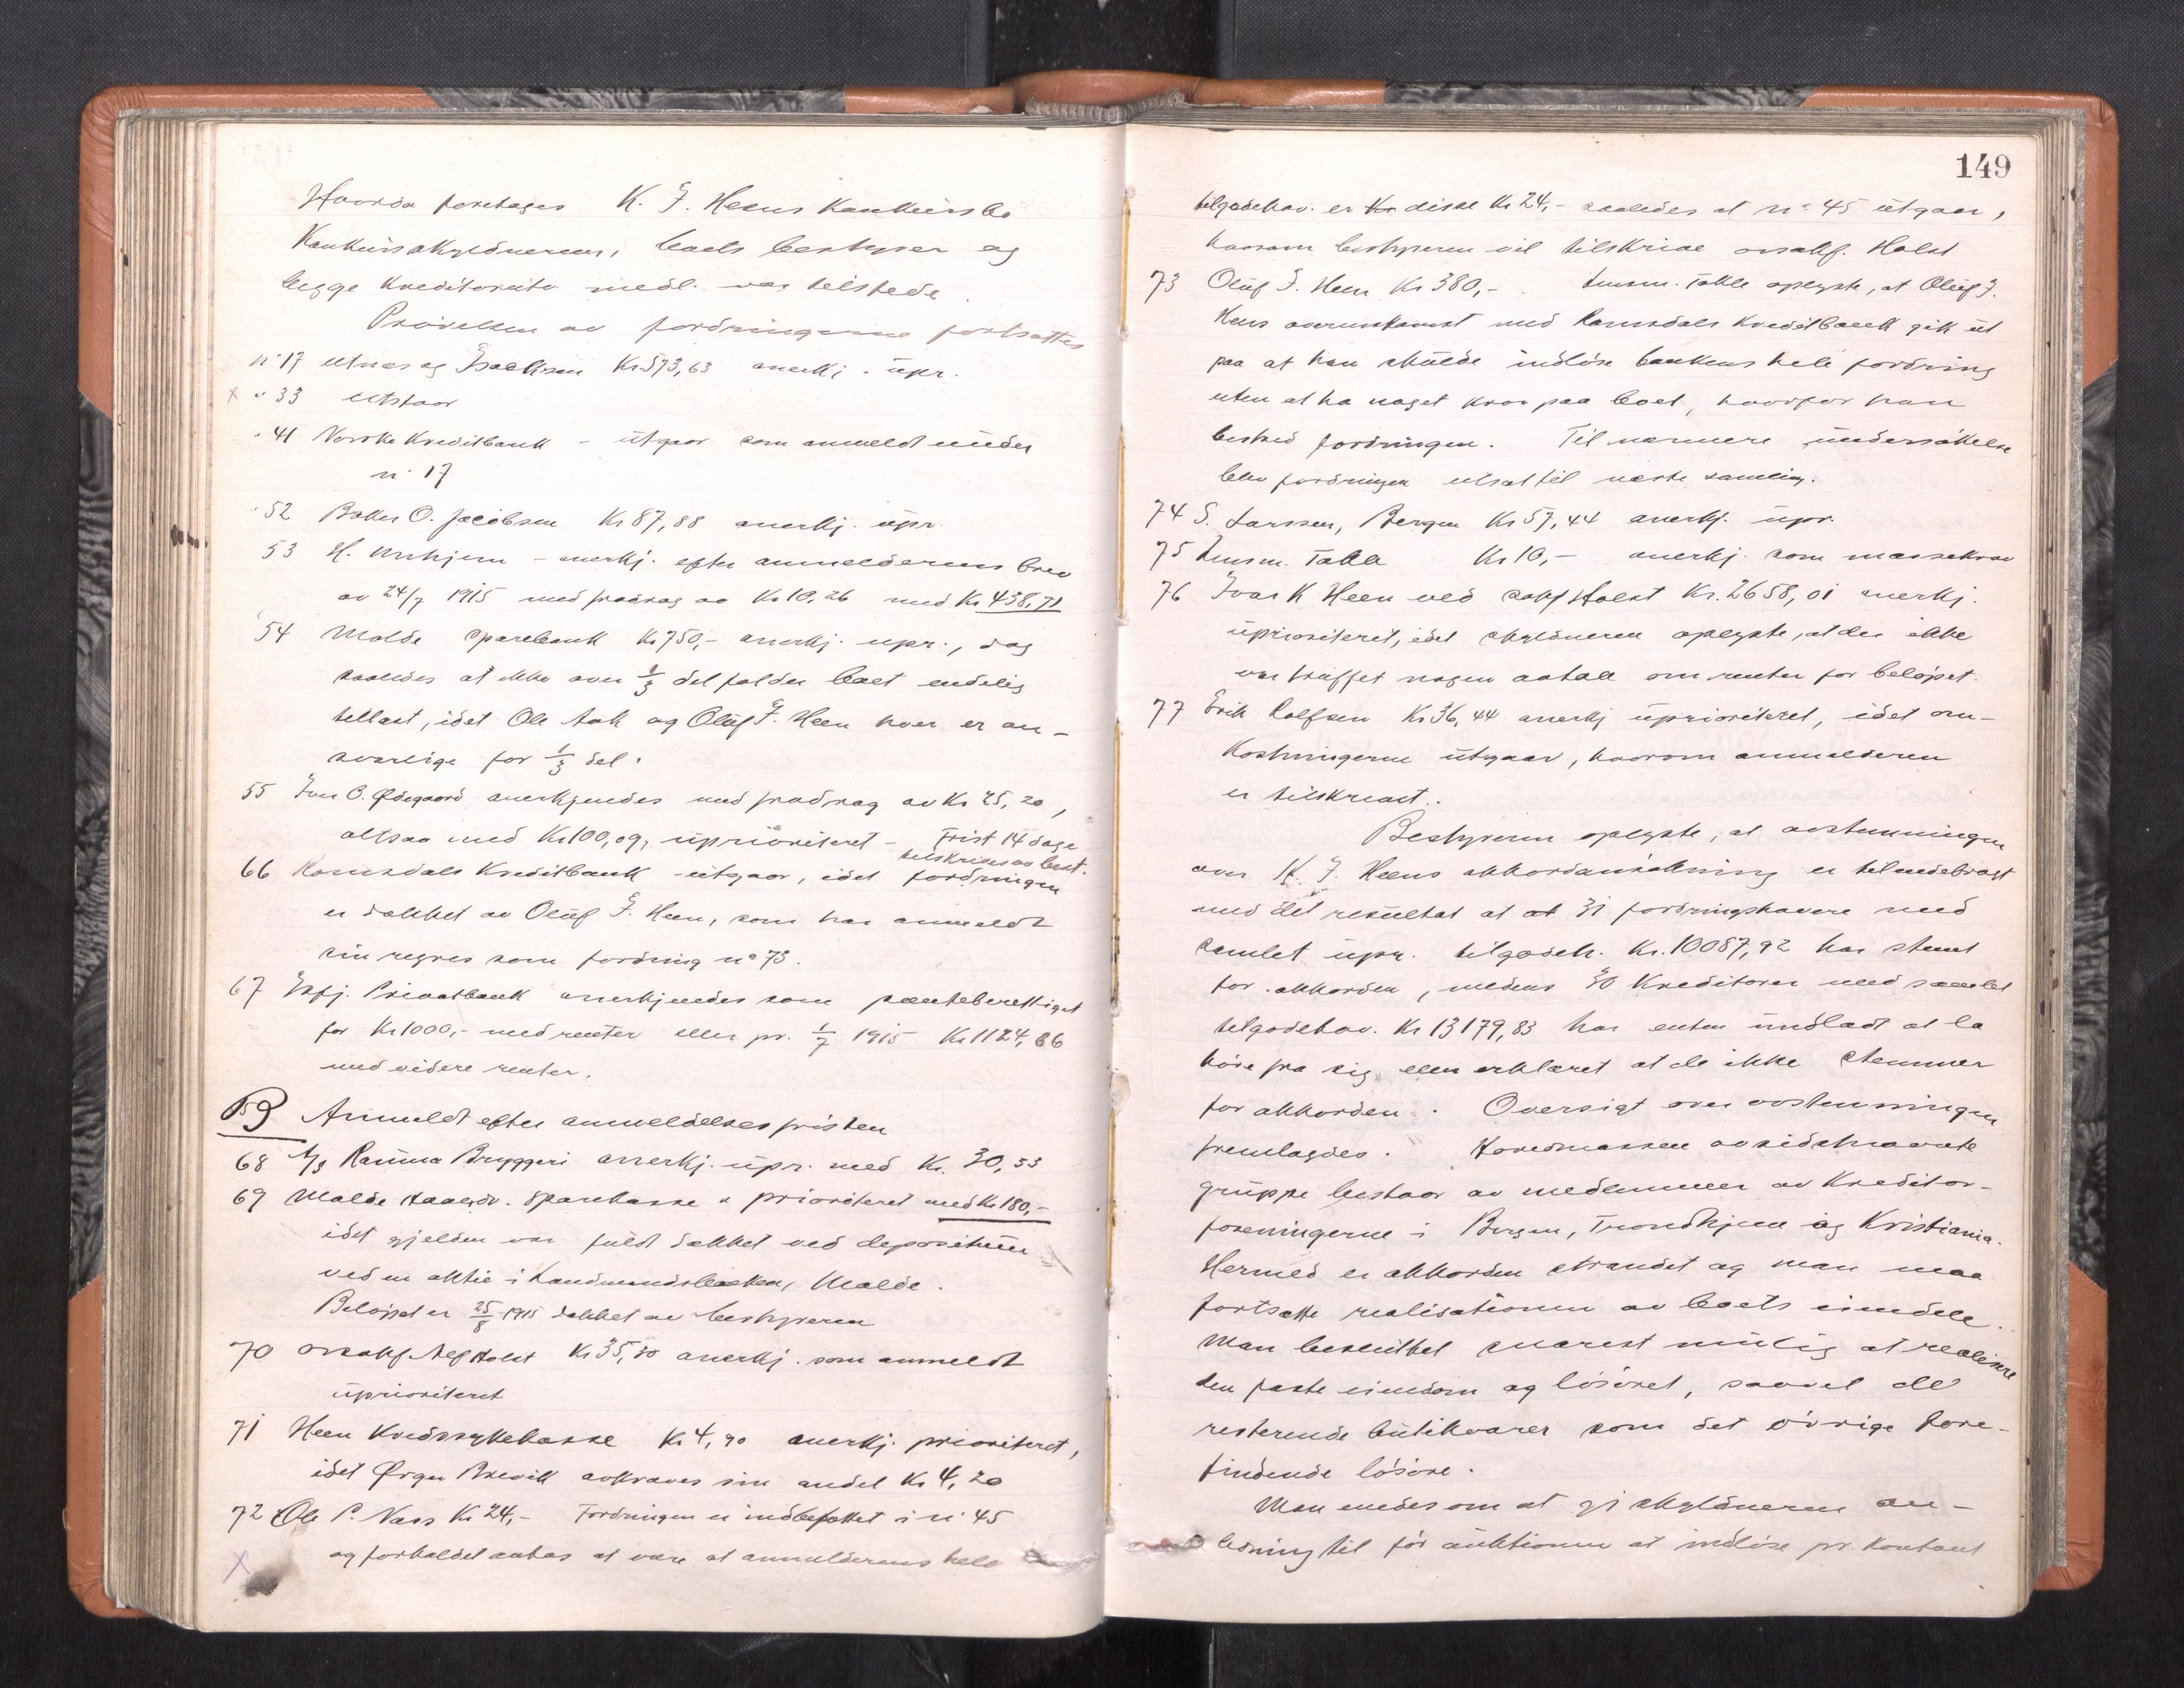 Hvorda foretages K. J. Heens Konkursbo
Konkursskyldneren, boets bestyrer og
begge kreditorutv. medl. var tilstede.
Prövelsen av fordringerne fortsattes
nº 17 Utnes og Isachsen Kr 573,63 anerkj. upr.
x " 33 utstaar
" 41 Norske Kreditbank - utgaar som anmeldt under
nº 17
" 52 Baker O. Jacobsen Kr 87,88 anerkj. upr.
53 H. Unhjem - anerkj. efter anmelderens brev
av 24/7 1915 med fradrag av Kr 10,26 med Kr 438,71
54 Molde Sparebank Kr 750,- anerkj. upr., dog
saaledes at ikke over 1/3 del falder boet endelig
tillast, idet Ole Aak og Oluf J. Heen hver er an-
svarlige for 1/3 del.
55 Iver O. Ødegaard anerkjendes med fradrag av Kr 25,20,
altsaa med Kr 100,09, uprioriteret - Frist 14 dage
tilskrives av best.
66 Romsdals Kreditbank - utgaar, idet fordringen
er dækket av Oluf J. Heen, som har anmeldt
sin regres som fordring nº 73.
67 Isfj. Privatbank anerkjendes som panteberettiget
for Kr 1000,- med renter eller pr. 1/7 1915 Kr 1124,66
med videre renter.
B Anmeldt efter anmeldelsesfristen
68 A/S Rauma Bryggeri anerkj. upr. med Kr. 30,53
69 Molde Haandv. Sparekasse " prioriteret med Kr 180,-
idet gjelden var fuldt dækket ved depositum
ved en aktie i Landmandsbanken, Molde.
Beløpet er 25/8 1915 dækket av bestyreren
70 Orsakf. Alf Holst Kr 35,50 anerkj. som anmeldt
uprioriteret
71 Heen Kredssykekasse Kr 4,90 anerkj. prioriteret,
idet Ørger Brevik avkraves sin andel Kr 4,20
72 Ole P. Næs Kr 24,- Fordringen er indbefattet i nº 45
x og forholdet antas at være at anmelderens hele
149
tilgodehav. er disse Kr 24,- saaledes at nº 45 utgaar,
hvorom bestyreren vil tilskrive orsakf. Holst
73 Oluf J. Heen Kr 380,-. Lensm. Tokle oplyste, at Oluf J.
Heens overenskomst med Romsdals Kreditbank gik ut
paa at han skulde indløse bankens hele fordring
uten at ha noget krav paa boet, hvorfor han
bestred fordringen. Til nærmere undersøkelse
blev fordringen utsat til næste samling.
74 S. Larssen, Bergen Kr 57,44 anerkj. upr.
75 Lensm. Tokle Kr 10,- anerkj. som massekrav
76 Ivar K Heen ved sakf Holst Kr. 2658,01 anerkj.
uprioriteret, idet skyldneren oplyste, at der ikke
var truffet nogen avtale om renter for beløpet.
77 Erik Rolfsen Kr 36,44 anerkj uprioriteret, idet om-
kostningerne utgaar, hvorom anmelderen
er tilskrevet.
Bestyreren oplyste, at avstemningen
over K. J. Heens akkordansøkning er tilendebragt
med det resultat at at 31 fordringshavere med
samlet upr. tilgodeh. Kr. 10087,92 har stemt
for akkorden, medens 30 Kreditorer med samlet
tilgodehav. Kr 13179,83 har enten undladt at la
høre fra sig eller erklæret at de ikke stemmer
for akkorden. Oversigt over avstemningen
fremlagdes. Hovedmassen av sidstnævnte
gruppe bestaar av medlemmer av Kreditor-
foreningerne i Bergen, Trondhjem og Kristiania.
Hermed er akkorden strandet og man maa
fortsætte realisationen av boets eiendele.
Man besluttet snarest mulig at realisere
den faste eiendom og løsöret, saavel de
resterende butikvarer som det øvrige fore-
findende løsøre.
Man enedes om at gi skyldneren an-
ledning til før auktionen at indløse pr. kontant